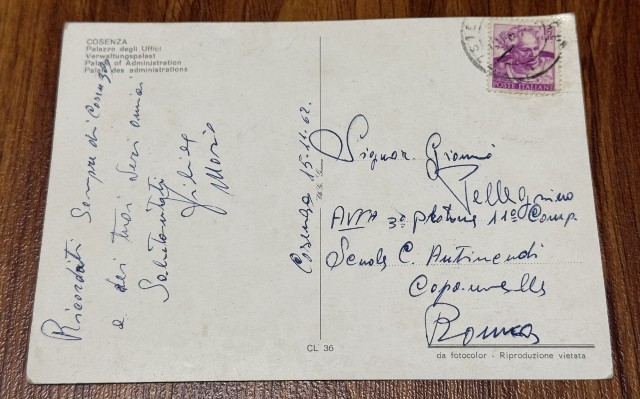 COSENZA
Palazzo degli Uffici
Verwaltungspalast
Palace of Administration
Palais des administrations
Ricordati sempre di Cosenza
e dei tuoi
Salutoni
Mario
Cosenza 15-11-62.
POSTE ITALIANE
Signor. Gianni
Pellegrino
3º plotone 11º Comp.
Scuola C. Antincendi
Capannelle
Roma
CL 36
da fotocolor - Riproduzione vietata